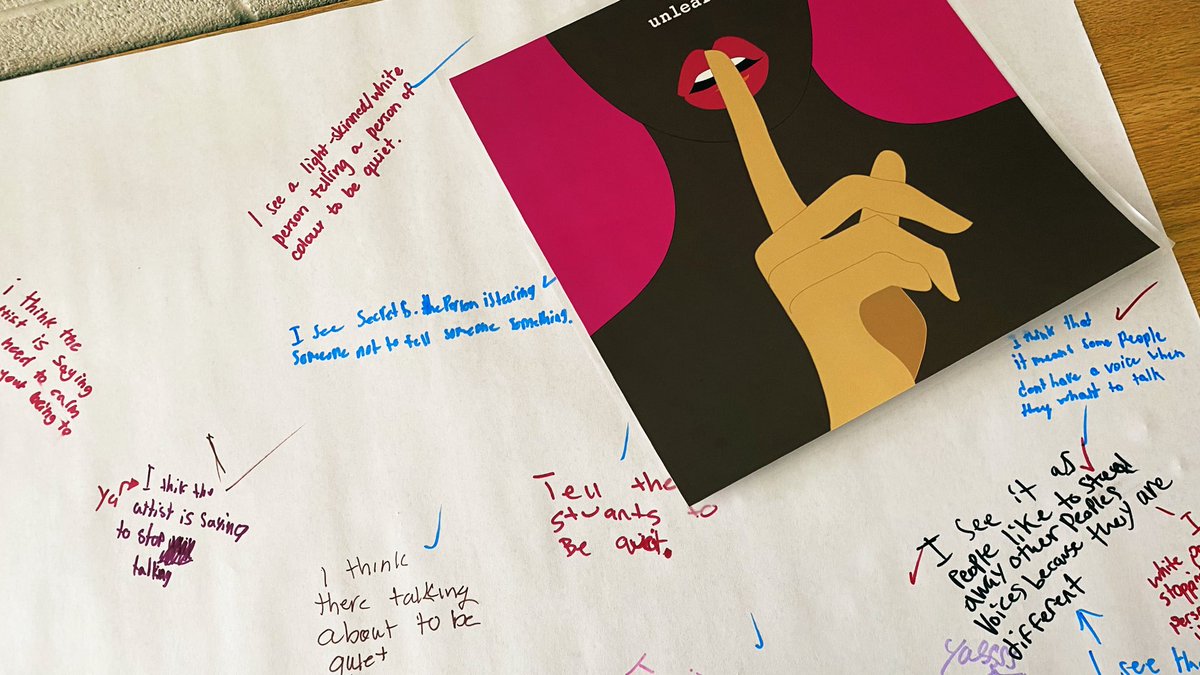 unlea
I see a light-skinned/white
person telling a person of
colour to be quiet.
I see secrets. the Person is
someone not to tell someone something.
i think the
tist is saying
need to calm
your being to
ya
I thik the
artist is saying
to stop
talking
I think
there talking
about to be
quiet
Tell the
stuants to
Be quiet.
I think that
it means some People
dont have a voice when
they whant to talk
I see it as
People like to
away other Peoples
voices because they are
different
yasss
I
white P
stoppi
pers
I see the